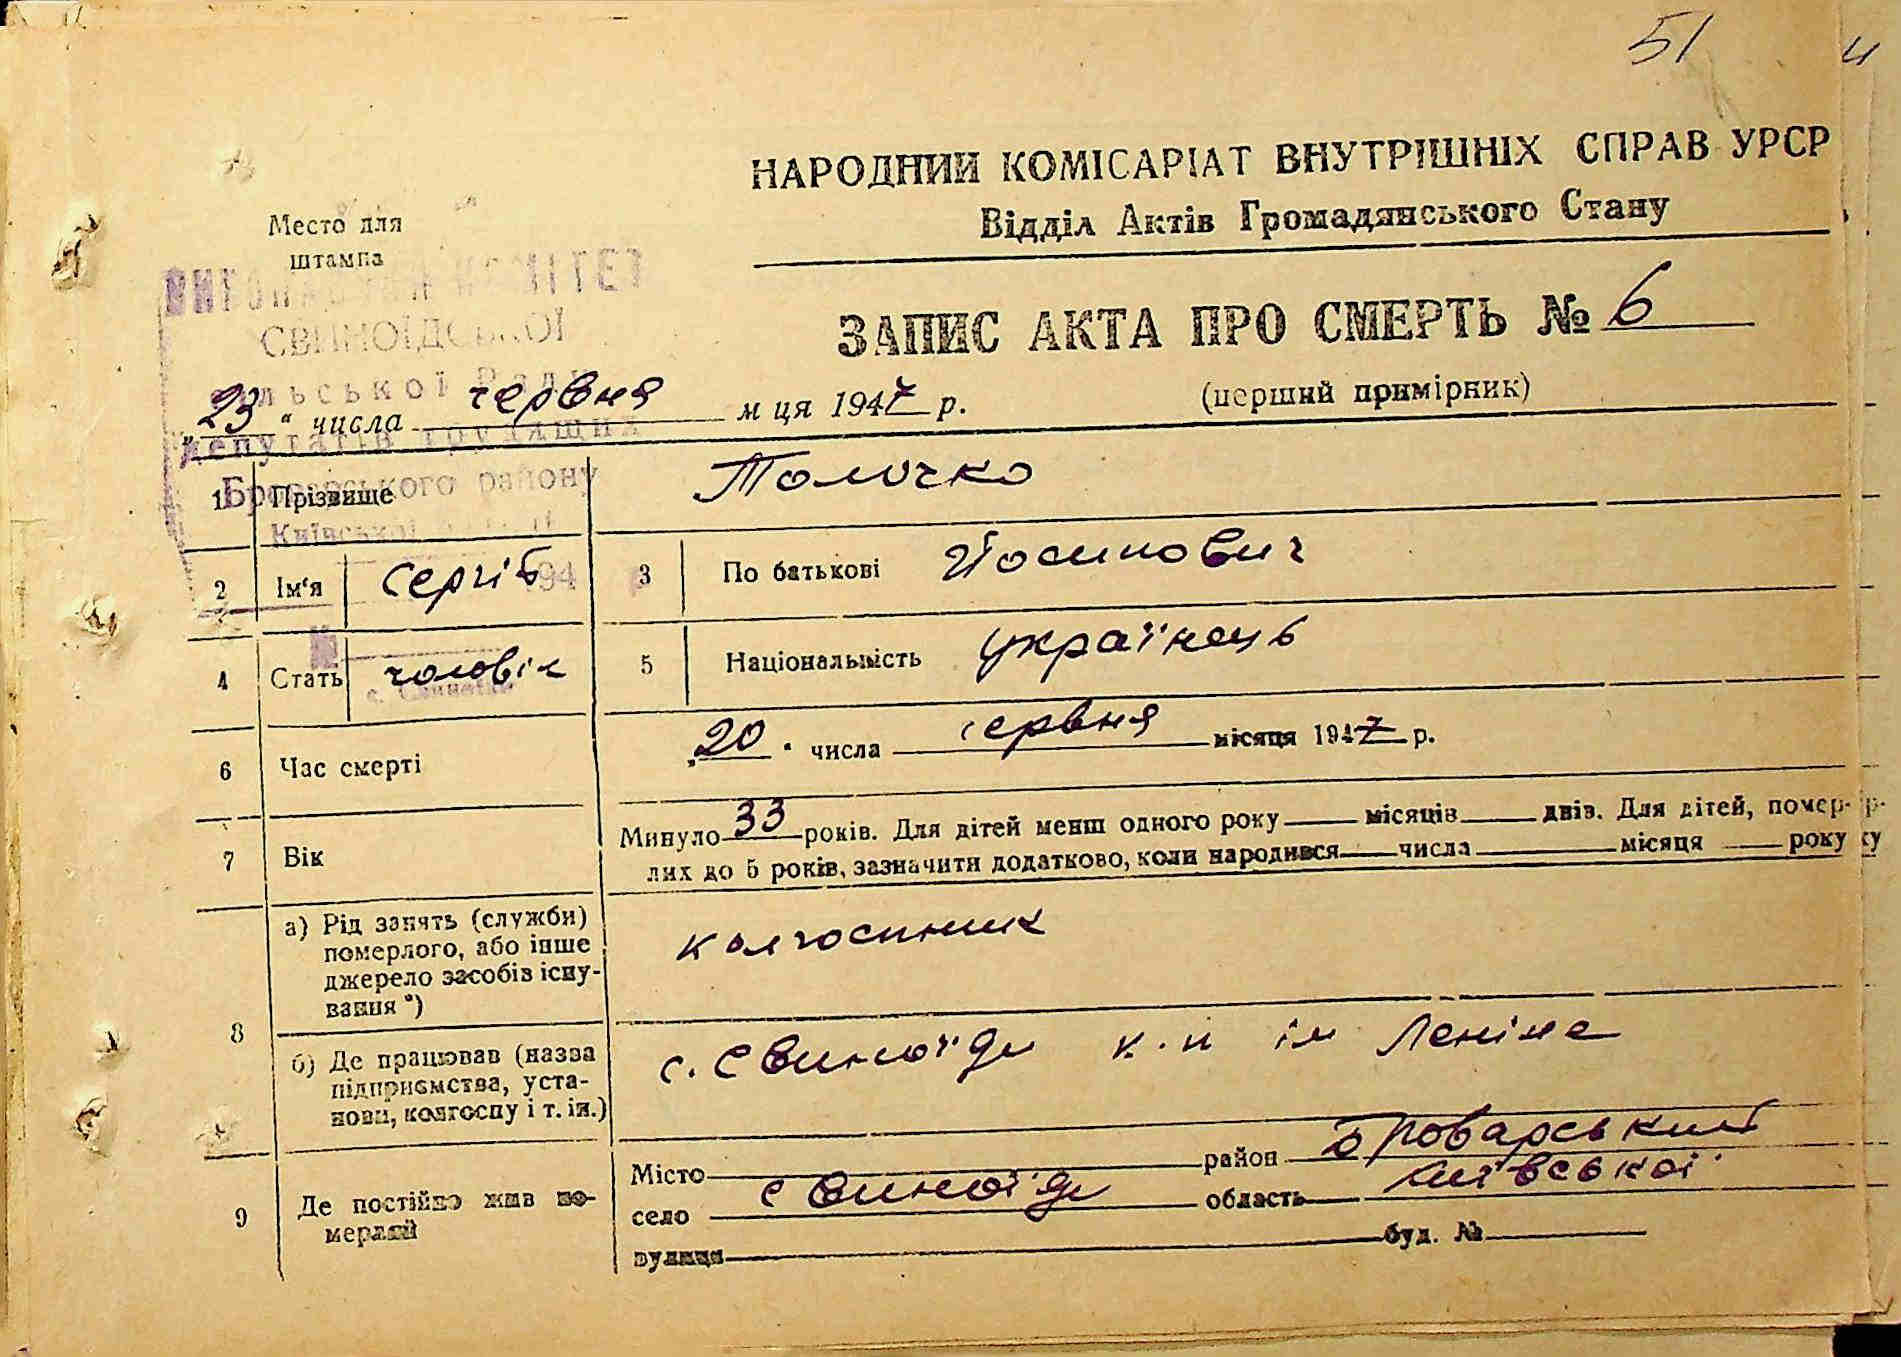 51
НАРОДНИЙ КОМІСАРІАТ ВНУТРІШНІХ СПРАВ УРСР
Відділ Актів Громадянського Стану
Место для
штампа
ВИКОНАВЧИЙ КОМІТЕТ
СВИНОЇДСЬКОЇ
сільської Ради
депутатів трудящих
Броварського району
Київської області
194
с. Свиноїди
ЗАПИС АКТА ПРО СМЕРТЬ № 6
(перший примірник)
„23“ числа червня м ця 1947 р.
1 Прізвище Толочко
2 Ім'я Сергій 3 По батькові Йосипович
4 Стать чоловік 5 Національність українець
6 Час смерті „20“ числа червня місяця 1947 р.
7 Вік Минуло 33 років. Для дітей менш одного року місяців днів. Для дітей, помер-
лих до 5 років, зазначити додатково, коли народився числа місяця року
8 а) Рід занять (служби)
померлого, або інше
джерело засобів існу-
вання *)
колгоспник
б) Де працював (назва
підприємства, уста-
нови, колгоспу і т. ін.)
с. Свиноїди к-п ім Леніна
9 Де постійно жив по-
мерлий
Місто район Броварський
село Свиноїди область Київської
вулиця буд. №